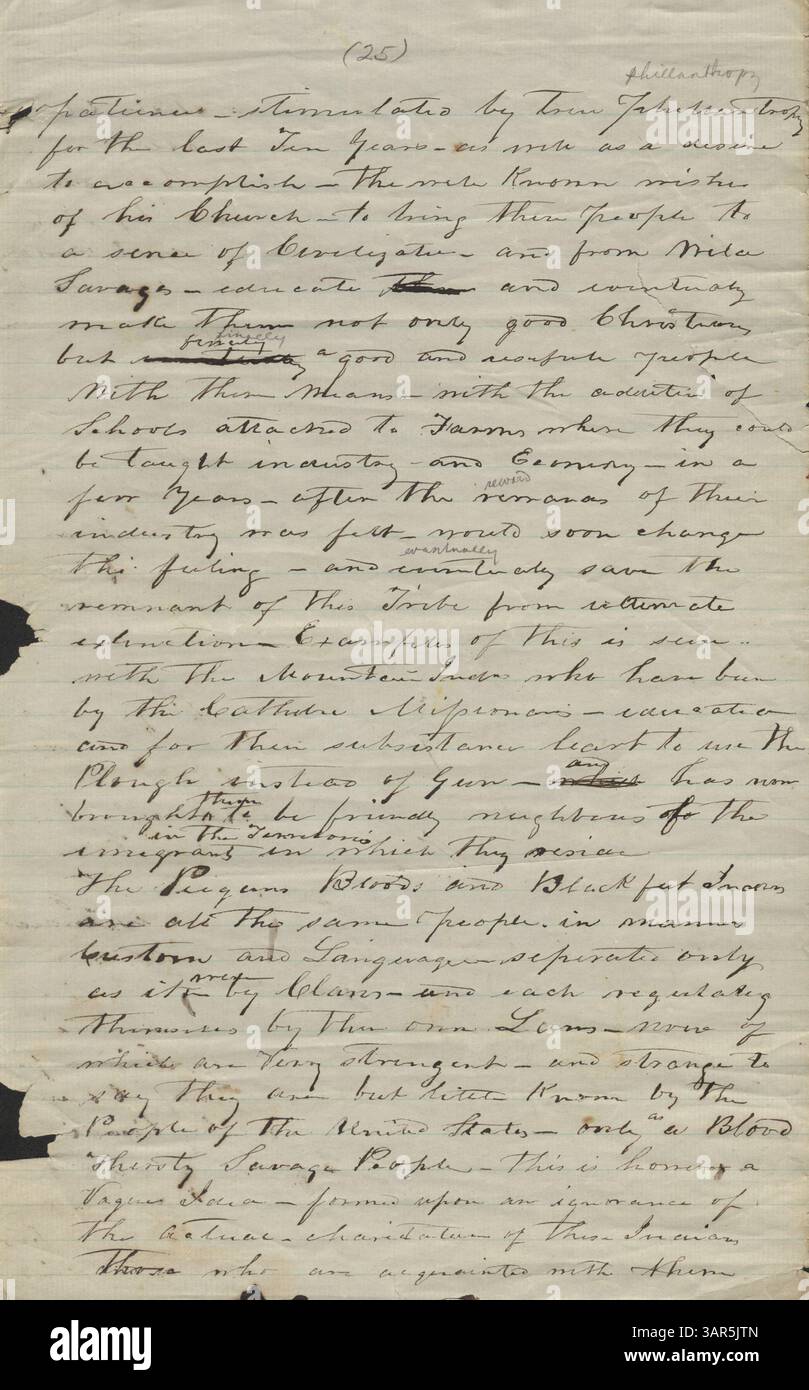 (25)
phillanthropy
patience - stimulated by true Philanthropy
for the last Ten Years - as well as a desire
to accomplish - the well Known wishes
of his Church - to bring these People to
a sence of Civilizatin - and from Wild
Savages - educate them and eventualy
make them not only good Christians
finally
but a good and usefull people
With these means - with the additin of
Schools attached to Farms where they could
be taught industry - and Economy - in a
reward
few Years - after the of their
industry was felt - would soon change
evantually
this feeling - and eventualy save the
remnant of this Tribe from ultimate
extinction - Examples of this is seen
with the Mountain Inds who have been
by the Catholic Missionaris - educated
and for their subsistance learnt to use the
and
Plough instead of Gun - which has now
them
brought to be friendly neighbours to the
in the Territoris
imegrants in which they reside
The Piegans Bloods and Blackfeet Indians
are all the same people in manner
Custom and Language - seperated only
were
as it by Clans - and each regulateg
themselves by their own Laws - none of
which are Very stringent - and strange to
say they are but little Known by the
as
People of the United States - only a Blood
Thirsty Savage People - this is however a
Vague Idea - formed upon an ignorance of
the actual - of these Indians
those who are acquainted with them
a
alamy
alamy
Image ID: 3AR5JTN
www.alamy.com